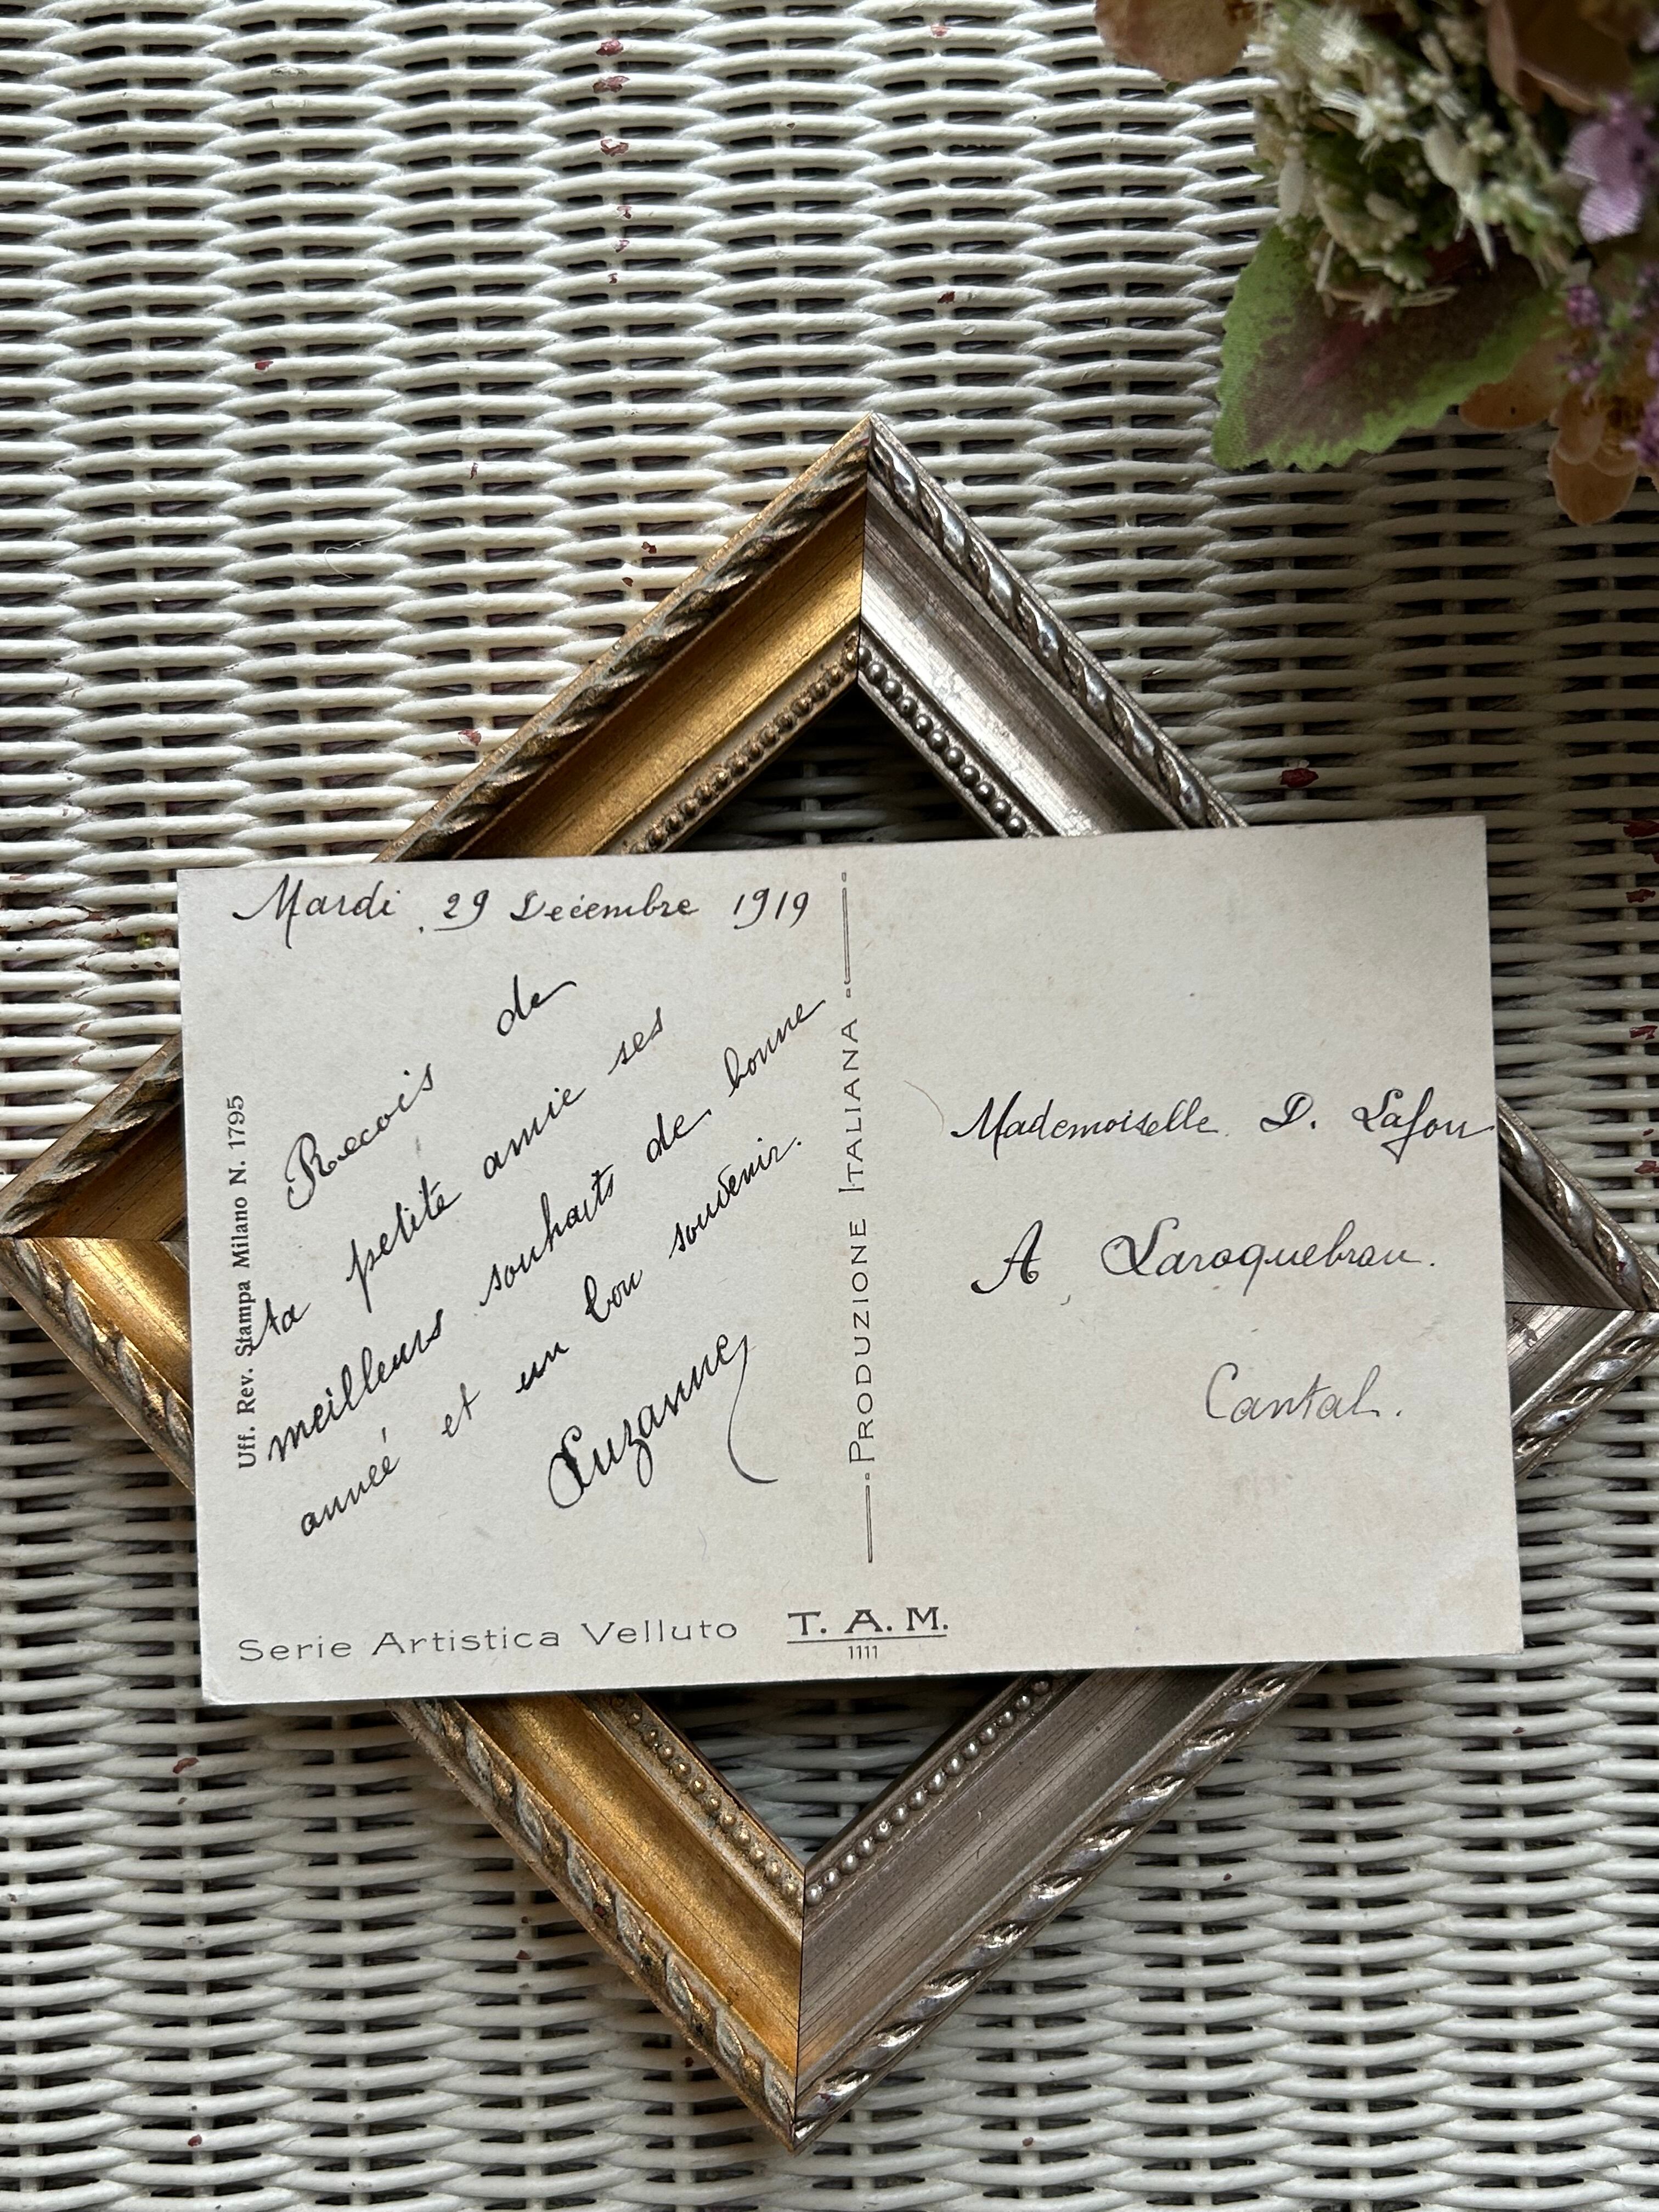 Mardi 29 Decembre 1919
Recois de
ta petite amie ses
meilleurs souhaits de bonne
année et un bon souvenir.
Suzanne
Uff. Rev. Stampa Milano N. 1795
PRODUZIONE ITALIANA
Mademoiselle D. Lafon
A Laroquebrou.
Cantal.
Serie Artistica Velluto T. A. M.
1111